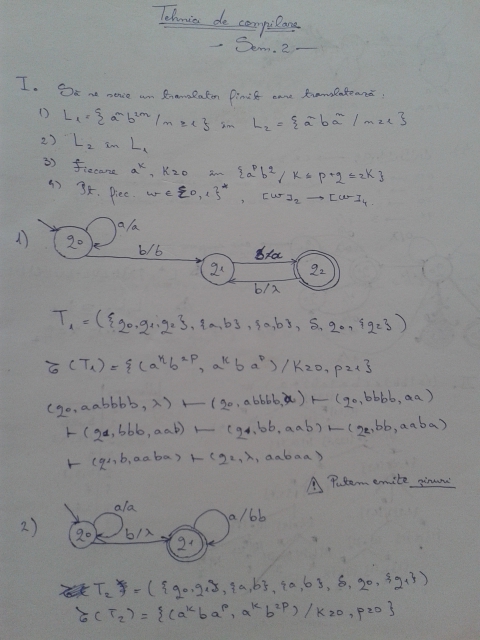 Tehnici de compilare
- Sem. 2 -
I. Să se scrie un translator finit care translatează:
1) L₁ = {aⁿb²ⁿ / n≥1} în L₂ = {aⁿbaⁿ / n≥1}
2) L₂ în L₁
3) Fiecare aᵏ, k≥0 în {aᵖb^q / k ≤ p+q ≤ 2k}
4) Pt. fiec. w ∈ {0,1}*, [w]₂ → [w]₄
1) q0 a/a b/b q1 b/a q2 b/λ
T₁ = ({q0,q1,q2}, {a,b}, {a,b}, δ, q0, {q2})
τ(T₁) = {(aᵏb²ᵖ, aᵏbaᵖ) / k≥0, p≥1}
(q0, aabbbb, λ) ⊢ (q0, abbbb, a) ⊢ (q0, bbbb, aa)
⊢ (q1, bbb, aab) ⊢ (q2, bb, aaba)
⊢ (q1, b, aaba) ⊢ (q2, λ, aabaa)
⚠ Putem emite șiruri
2) q0 a/a b/λ q1 a/bb
T₂ = ({q0,q1}, {a,b}, {a,b}, δ, q0, {q1})
τ(T₂) = {(aᵏbaᵖ, aᵏb²ᵖ) / k≥0, p≥0}